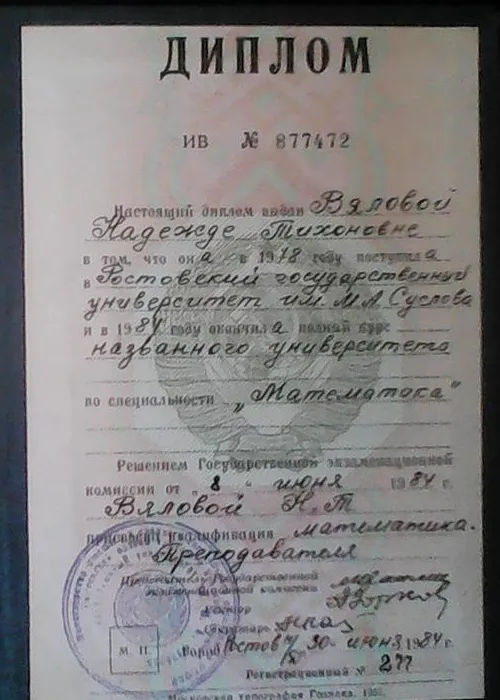 ДИПЛОМ
ИВ № 877472
Настоящий диплом выдан Вяловой
Надежде Тихоновне
в том, что она в 1978 году поступила
в Ростовский государственный
университет им. М.А. Суслова
и в 1984 году окончила полный курс
названного университета
по специальности „Математика"
Решением Государственной экзаменационной
комиссии от „8" июня 1984 г.
Вяловой Н.Т
присвоена квалификация математика.
Преподавателя
Председатель Государственной
экзаменационной комиссии
Ректор
Секретарь
М. П. Город Ростов н/Д 30 июня 1984 г.
Регистрационный № 277
Московская типография Гознака. 198